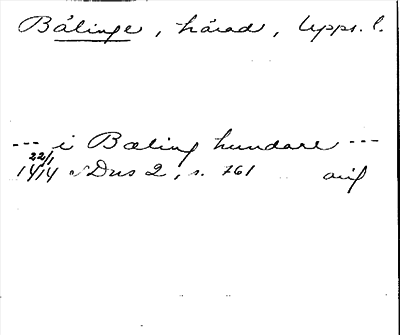 Bälinge, härad, Upps. l.
--- i Bæling hundare ---
22/1
1414 SDns 2, s. 761 avig